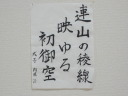 連山の稜線
映ゆる
初御空